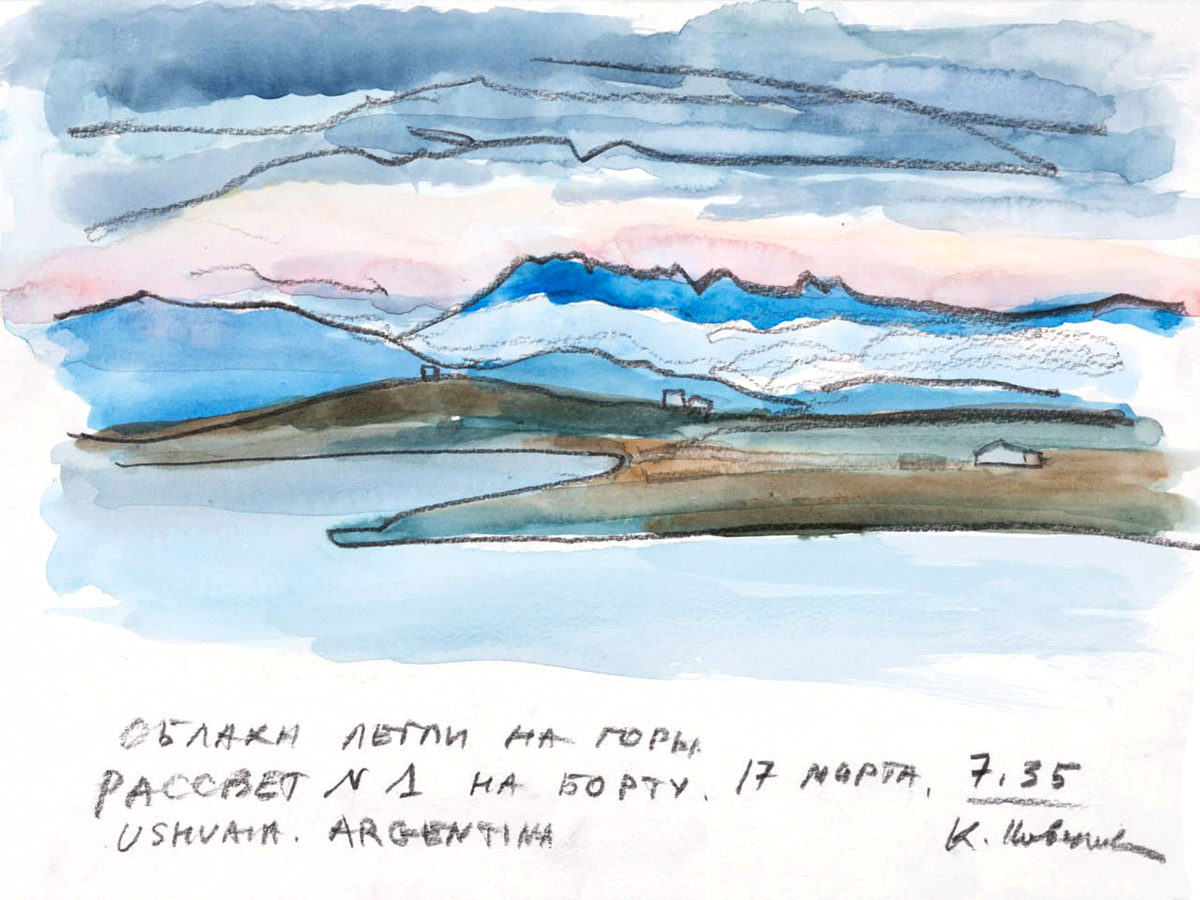 ОБЛАКА ЛЕГЛИ НА ГОРЫ
РАССВЕТ N 1 НА БОРТУ. 17 МАРТА. 7.35
USHUAIA. ARGENTINA
К.